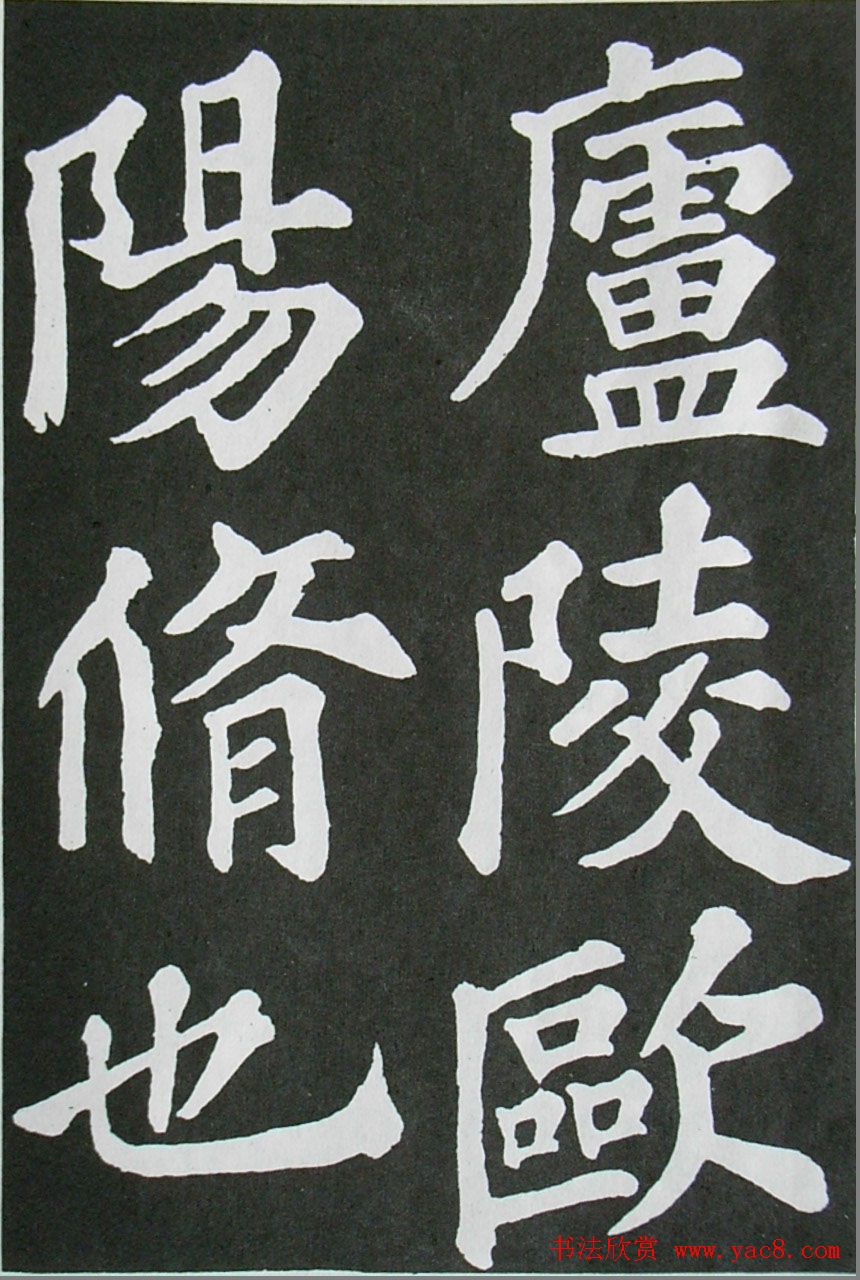 廬陵歐
陽脩也
书法欣赏 www.yac8.com